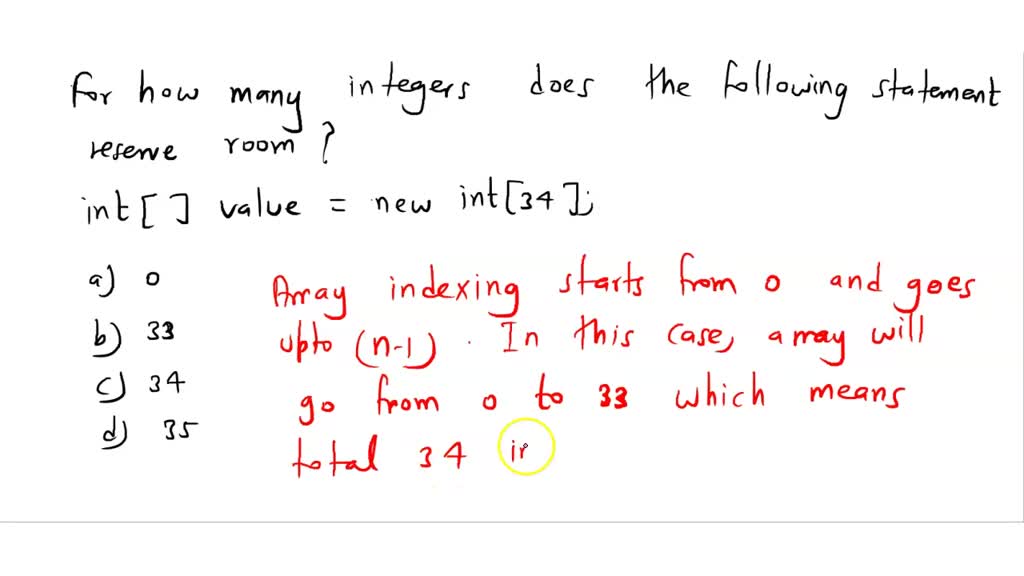 For how many integers does the following statement
reserve room?
int[] value = new int[34];
a) 0
b) 33
c) 34
d) 35
Array indexing starts from 0 and goes
upto (n-1). In this case, array will
go from 0 to 33 which means
total 34 in